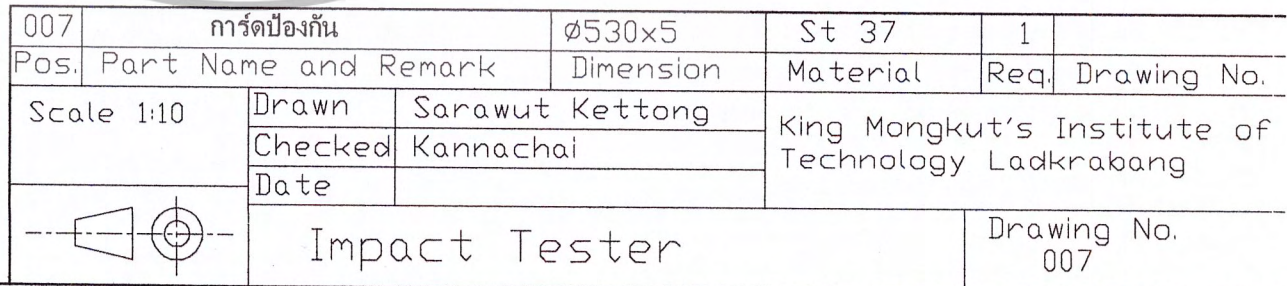 007 การ์ดป้องกัน Ø530x5 St 37 1
Pos. Part Name and Remark Dimension Material Req. Drawing No.
Scale 1:10
Drawn Sarawut Kettong
Checked Kannachai
Date
King Mongkut's Institute of
Technology Ladkrabang
Impact Tester
Drawing No.
007